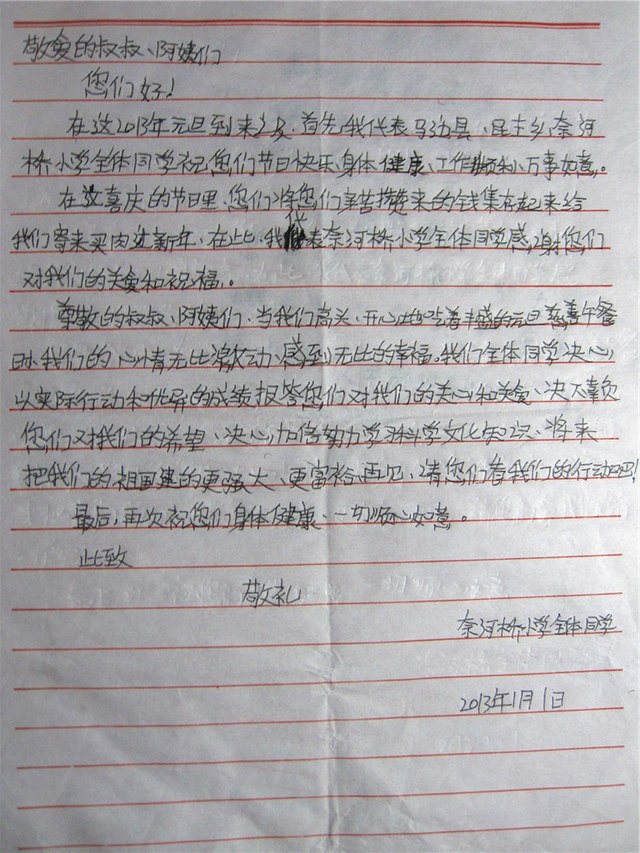 敬爱的叔叔、阿姨们
您们好!
在这2013年元旦到来之及,首先,我代表马边县、民主乡奈河
桥小学全体同学祝您们节日快乐、身体健康、工作顺利、万事如意。
在这喜庆的节日里、您们将您们辛苦攒来的钱集在起来给
我们寄来买肉过新年、在此、我代表奈河桥小学全体同学感谢您们
对我们的关爱和祝福。
尊敬的叔叔、阿姨们、当我们高兴、开心地吃着丰盛的元旦慈善午餐
时、我们的心情无比激动、感到无比的幸福。我们全体同学决心、
以实际行动和优异的成绩报答您们对我们的关心和关爱、决不辜负
您们对我们的希望、决心加倍努力学习科学文化知识、将来
把我们的祖国建的更强大、更富裕、再见、请您们看我们的行动吧!
最后,再次祝您们身体健康、一切顺心如意。
此致
敬礼
奈河桥小学全体同学
2013年1月1日